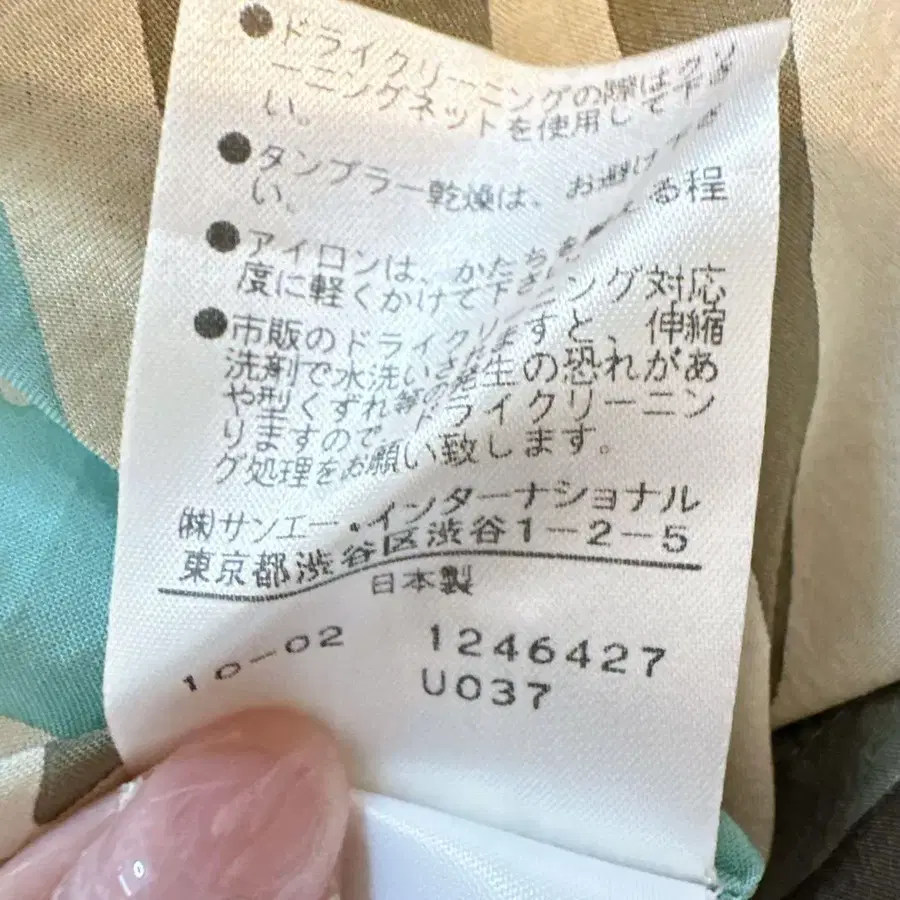 ●ドライクリーニングの際はクリ
ーニングネットを使用して下さ
い。
●タンブラー乾燥は、お避け下さ
い。
●アイロンは、かたちを整える程
度に軽くかけて下さい。
●市販のドライクリーニング対応
洗剤で水洗いされますと、伸縮
や型くずれ等の発生の恐れがあ
りますので、ドライクリーニン
グ処理をお願い致します。
㈱サンエー・インターナショナル
東京都渋谷区渋谷1-2-5
日本製
10-02 1246427
U037